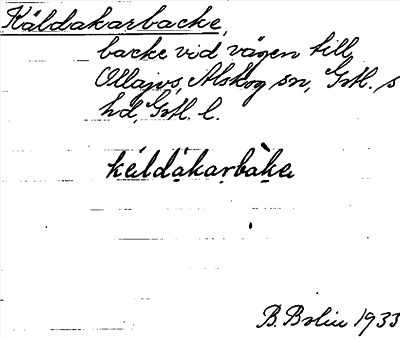 Käldakarbacke,
backe vid vägen till
Ollajvs, Alskog sn, Gotl. s
hd, Gotl. l.
käldakarbake
B. Bolin 1933